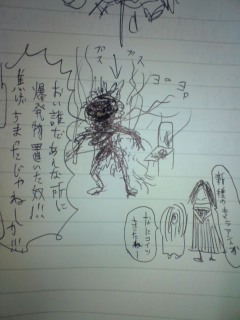 プス
プス
ヨロ
ヨロ
おい誰だあんな所に
爆発物置いた奴!!!
焦げちまったじゃねーか!!!
新種のキャラデスか
なにコイツ
きたねー